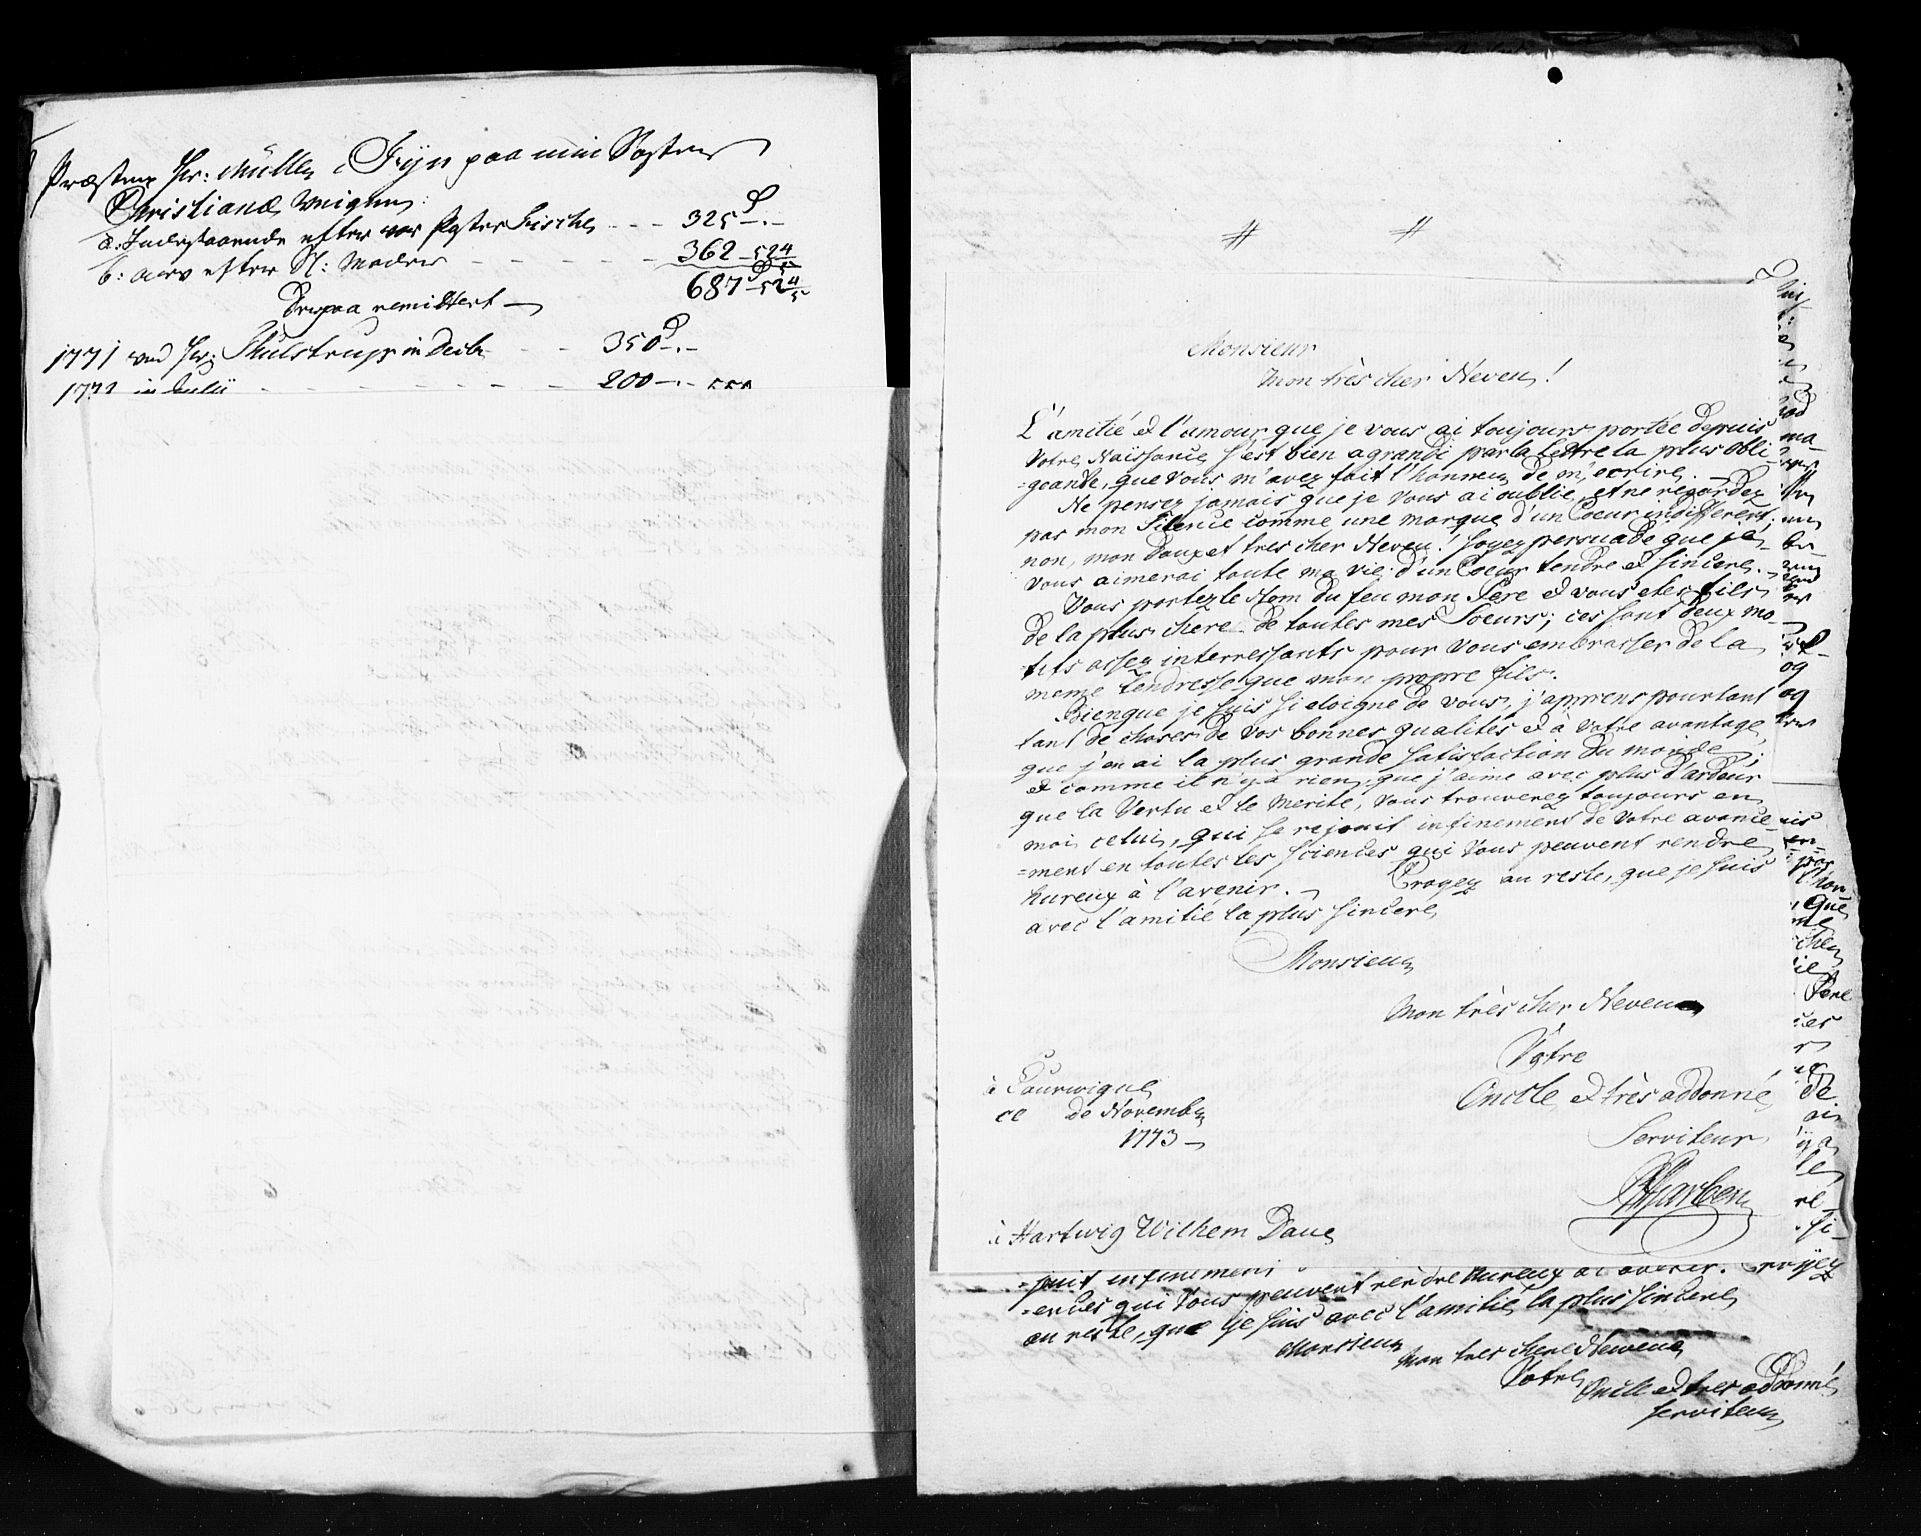 Præsten Hr: Müller i Fyn paa min Søsters
Christianæ Weigne:
a: Indestaaende efter vor Søster Lische - - - 325 -.-
b: arv efter Sl: Moder - - - - - 362 - 5 2 4/5
687 - 5 2 4/5
Derpaa remitteret
1771 ved Hr: Skulstrup in Decbr - - 350 -.-
1772 in Julii - - - - - - 200 -.-
Monsieur
mon très cher Neveu!
L'amitié et l'amour que je vous ai toujours portée depuis
Votre Naissance s'est bien agrandi par la lettre la plus obli-
=geante, que Vous m'avez fait l'honneur de m'ecrire. -
Ne pensez jamais que je Vous ai oublie, et ne regardez
pas mon Silence comme une marque d'un Coeur indifferent;
non, mon doux et tres cher Neveu! soyez persuade que je
vous aimerai toute ma vie d'un Coeur tendre et sincere. -
Vous portez le Nom du feu mon Pere et vous etes fils
de la plus chere de toutes mes Soeurs; ces sont deux mo-
tifs assez interressants pour Vous embrasser de la
meme tendresse que mon propre fils.
Bienque je suis si eloigne de vous, j'apprens pourtant
tant de choses de Vos bonnes qualités et à Votre avantage,
que j'en ai la plus grande satisfaction du monde;
et comme il n'y a rien, que j'aime avec plus d'ardeur
que la Vertu et le Merite, Vous trouverez toujours en
moi celui, qui se rejouit infinement de Votre avance-
=ment en toutes les Sciences qui Vous peuvent rendre
hureux à l'avenir. - Croyez au reste, que je suis
avec l'amitié la plus sincere
Monsieur
Mon très cher Neveu
Votre
Oncle et très addonné
Serviteur
à Tourwigue
ce de Novembr
1773 -
à Hartwig Wilhem Daue
=jouit infinement
=ences qui Vous peuvent rendre hureux a l'avenir. Croyez
au reste, que je suis avec l'amitié la plus sincere
Monsieur
Mon tres chere Neveue
Votre
Oncle et tres addonné
serviteur